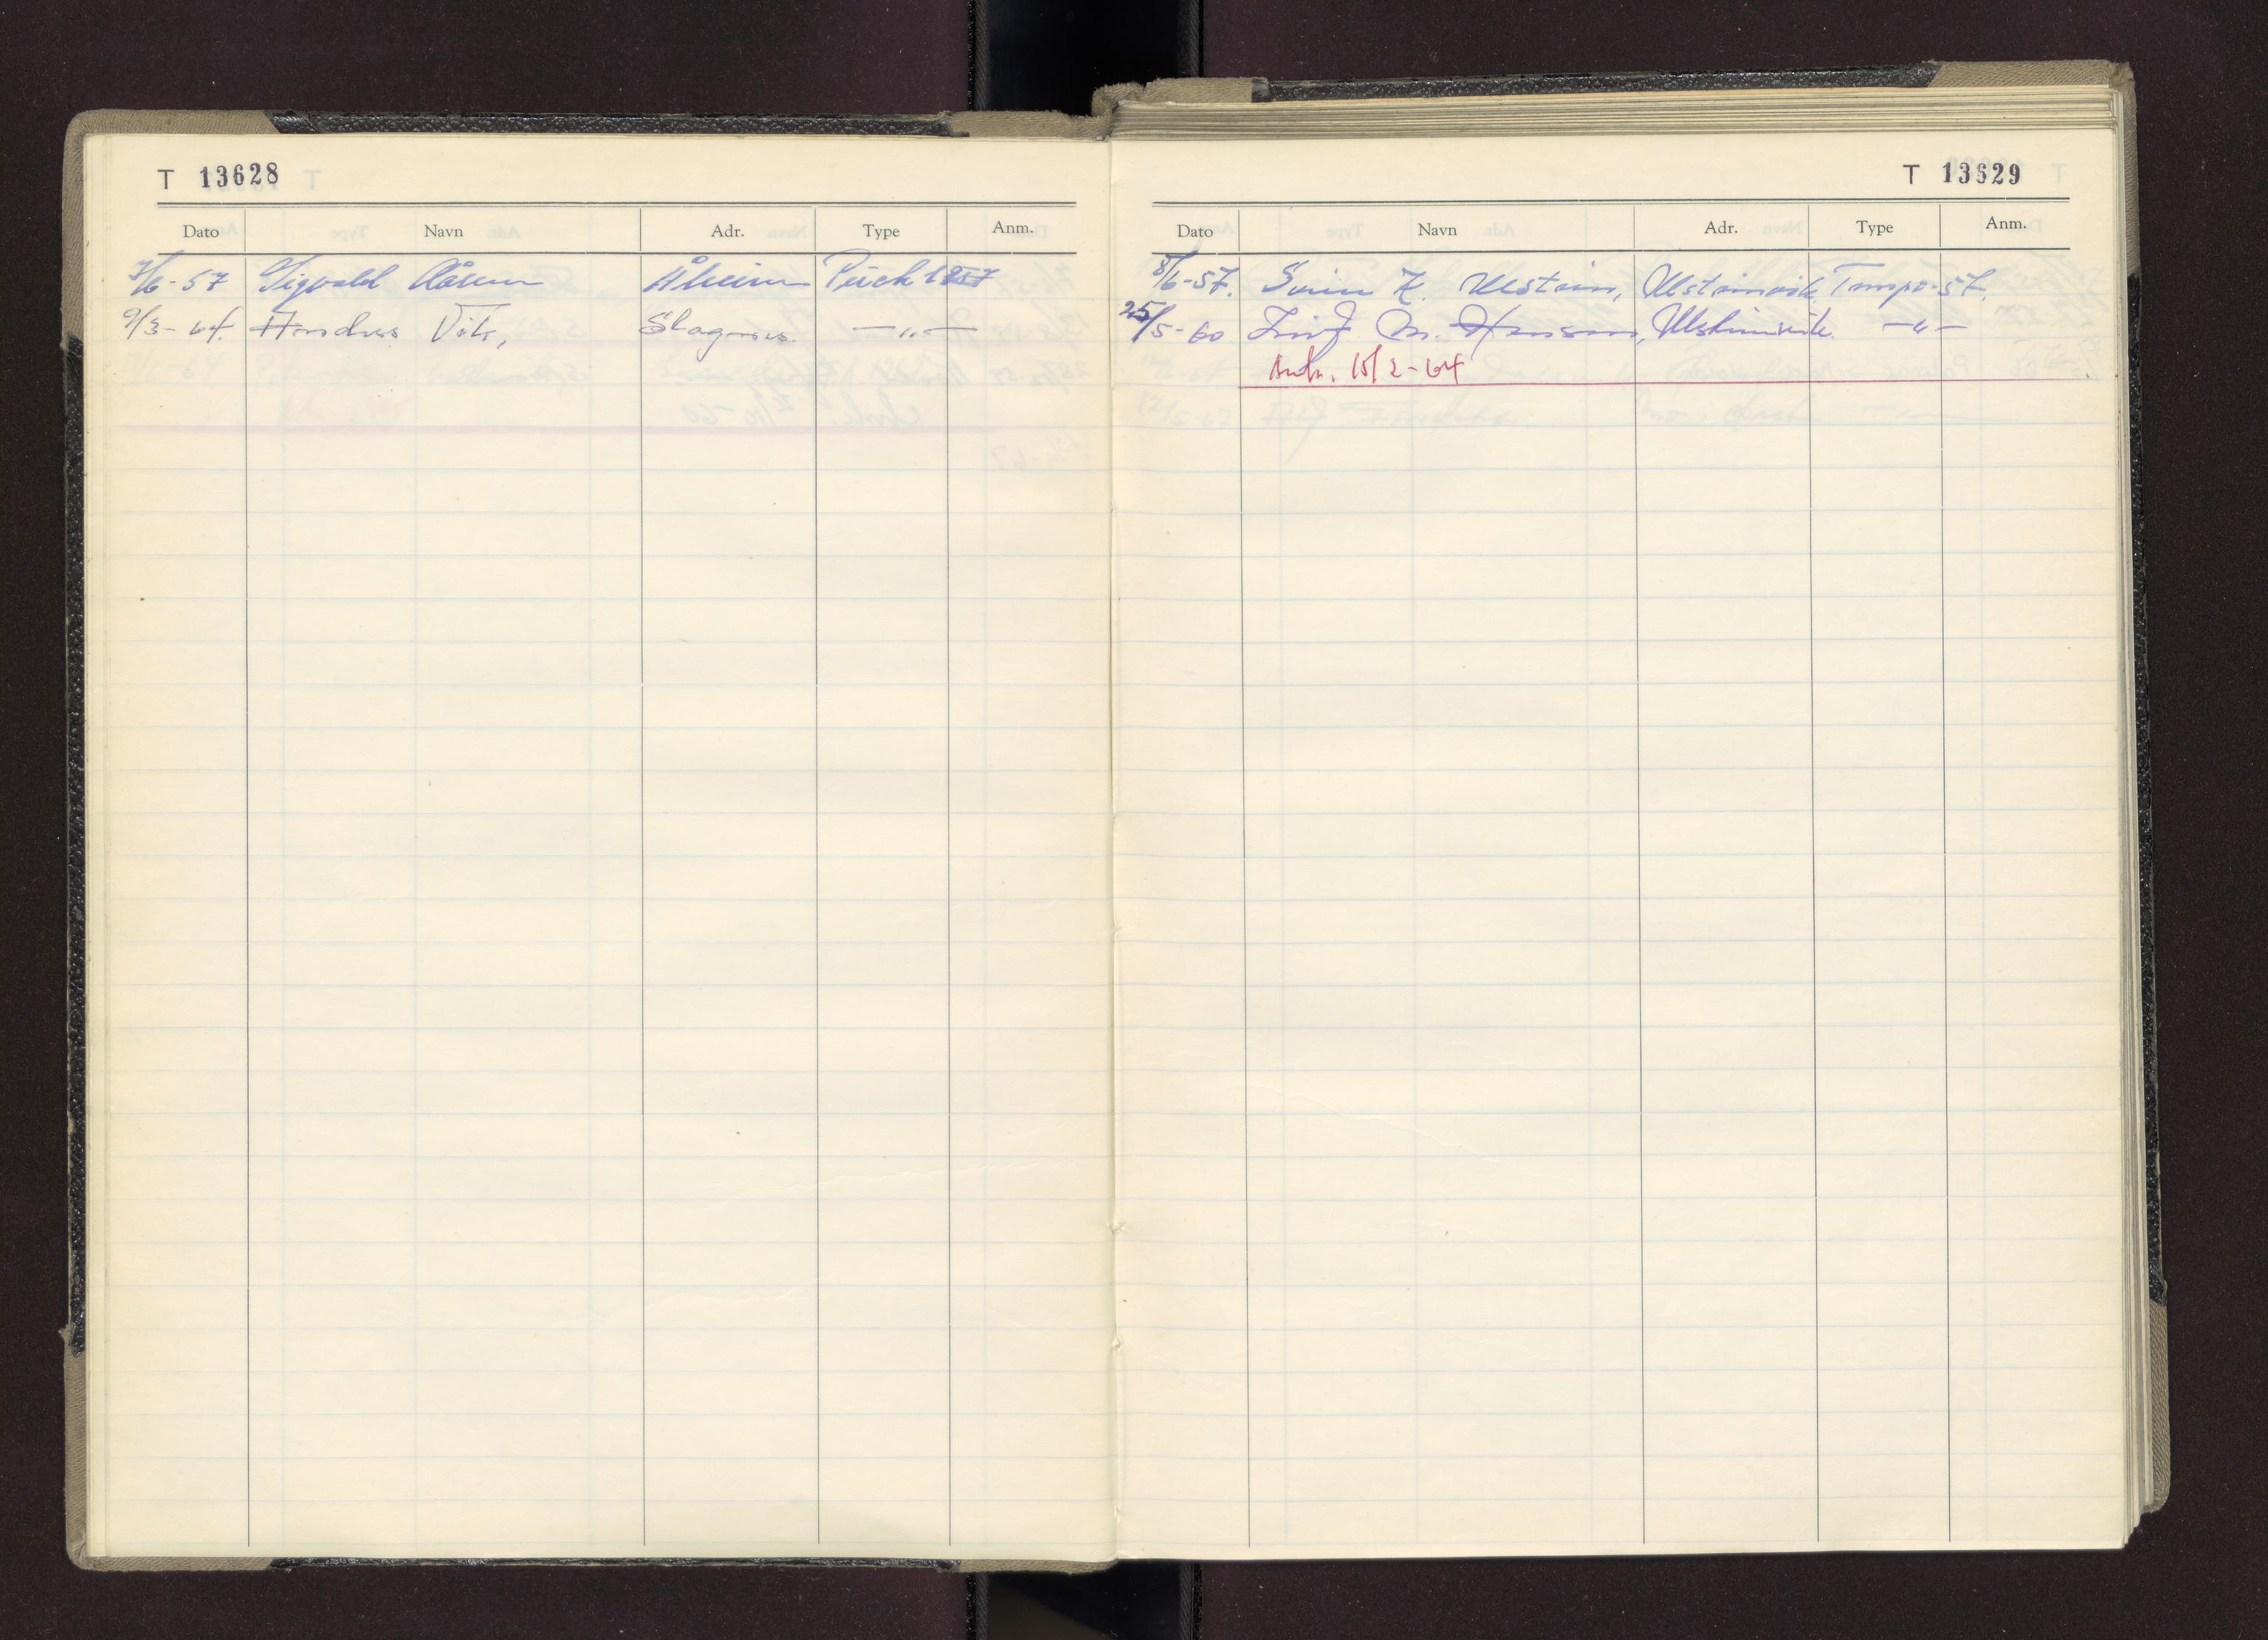 T 13628
Dato Navn Adr. Type Anm.
7/6-57 Sigvald Aasen Åheim Puch 1957
9/3-64. Andreas Vik, Slagnes. —"—
T 13629
Dato Navn Adr. Type Anm.
8/6-57. Svein K. Ulstein, Ulsteinvik. Tempo-57.
25/5-60 Leif M. Hansen, Ulsteinvik —"—
15/2-64